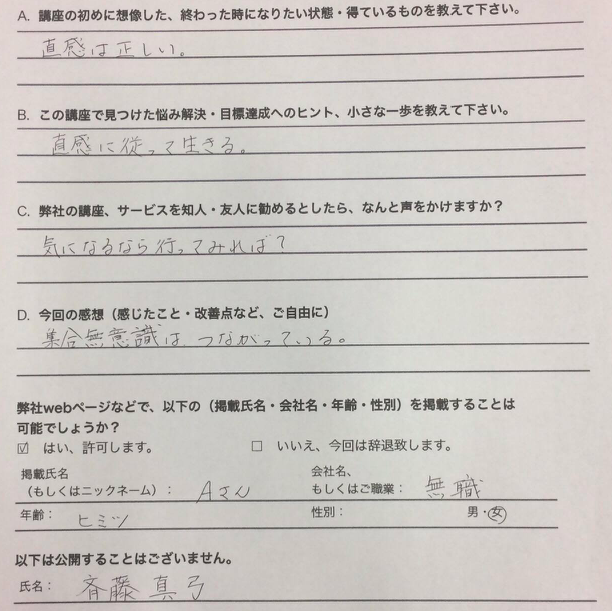 A. 講座の初めに想像した、終わった時になりたい状態・得ているものを教えて下さい。
直感は正しい。
B. この講座で見つけた悩み解決・目標達成へのヒント、小さな一歩を教えて下さい。
直感に従って生きる。
C. 弊社の講座、サービスを知人・友人に勧めるとしたら、なんと声をかけますか？
気になるなら行ってみれば？
D. 今回の感想（感じたこと・改善点など、ご自由に）
集合無意識は、つながっている。
弊社webページなどで、以下の（掲載氏名・会社名・年齢・性別）を掲載することは
可能でしょうか？
☑ はい、許可します。 □ いいえ、今回は辞退致します。
掲載氏名 会社名、
（もしくはニックネーム）： Aさん もしくはご職業： 無職
年齢： ヒミツ 性別： 男・女
以下は公開することはございません。
氏名： 斉藤 真弓